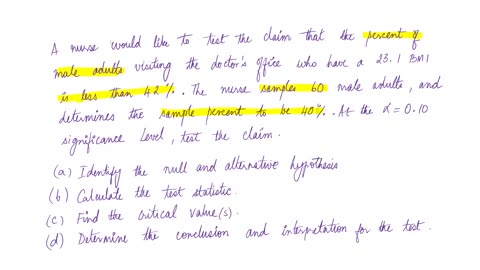 A nurse would like to test the claim that the percent of
male adults visiting the doctor's office who have a 23.1 BMI
is less than 42%. The nurse samples 60 male adults, and
determines the sample percent to be 40%. At the α = 0.10
significance level, test the claim.
(a) Identify the null and alternative hypothesis
(b) Calculate the test statistic.
(c) Find the critical value(s).
(d) Determine the conclusion and interpretation for the test.